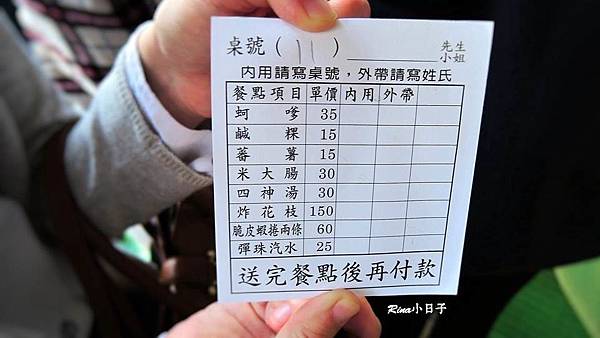 桌號(11) 先生
小姐
內用請寫桌號,外帶請寫姓氏
餐點項目 單價 內用 外帶
蚵嗲 35
鹹粿 15
蕃薯 15
米大腸 30
四神湯 30
炸花枝 150
脆皮蝦捲兩條 60
彈珠汽水 25
送完餐點後再付款
Rina小日子